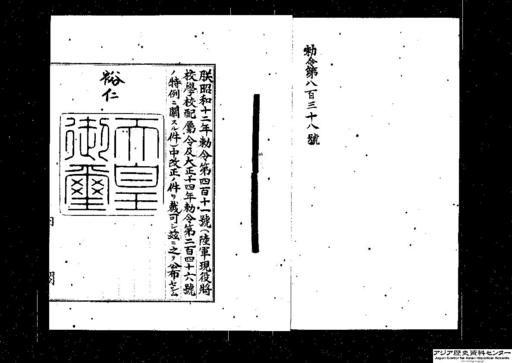 勅令第八百三十八號
朕昭和十二年勅令第四百十一號（陸軍現役將
校學校配屬令及大正十四年勅令第二百四十六號
ノ特例ニ關スル件）中改正ノ件ヲ裁可シ茲ニ之ヲ公布セシム
裕仁
天皇
御璽
内閣
アジア歴史資料センター
Japan Center for Asian Historical Records